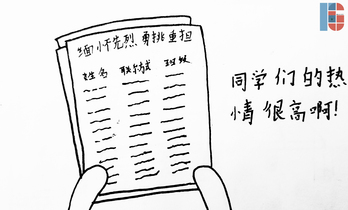 缅怀先烈 勇挑重担
姓名 联系方式 班级
同学们的热
情很高啊!